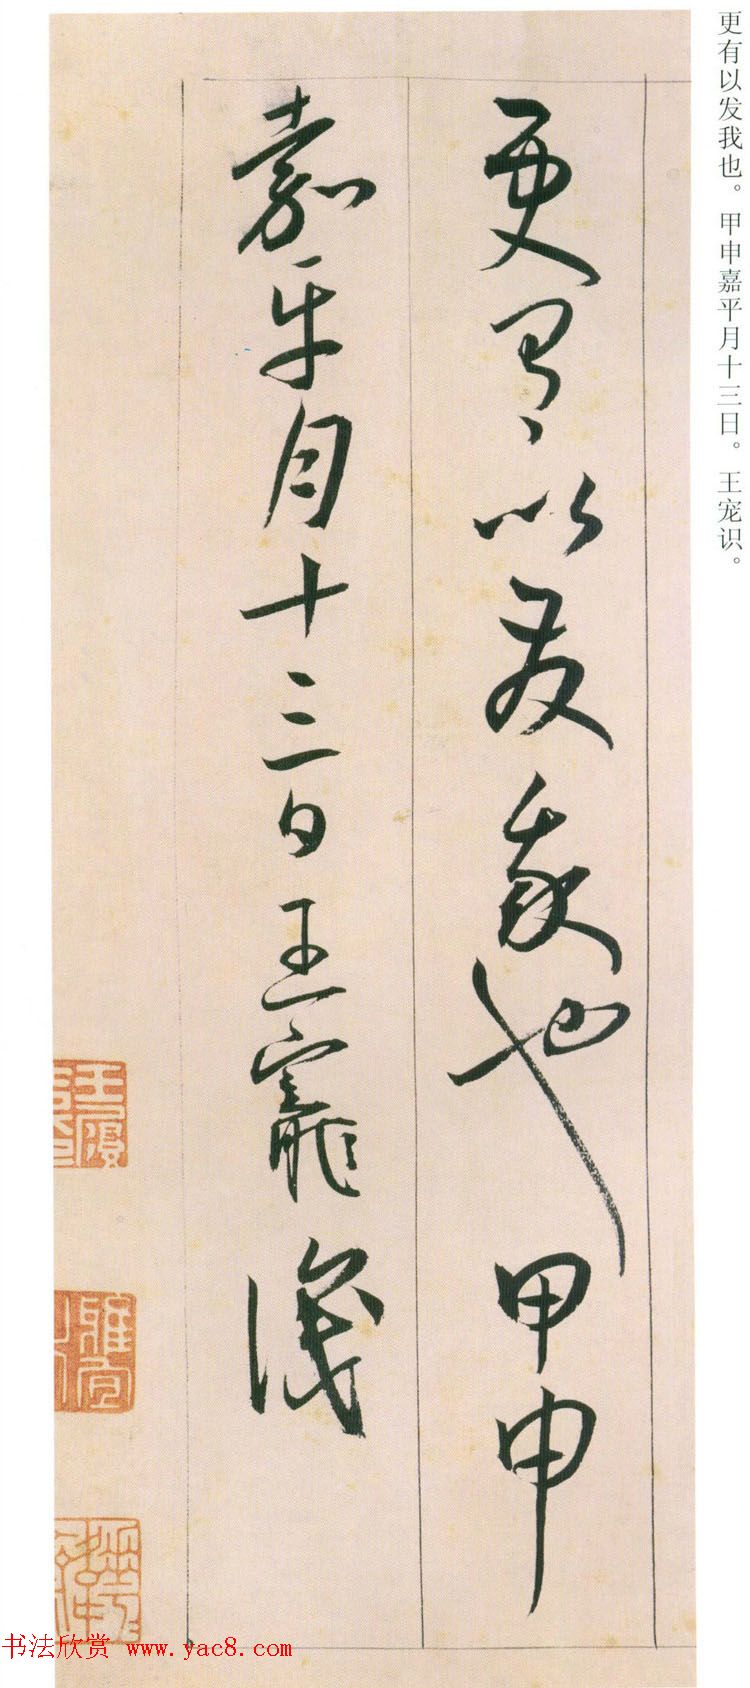 更有以发我也。甲申嘉平月十三日。王宠识。
更有以發我也甲申
嘉平月十三日王寵識
书法欣赏 www.yac8.com